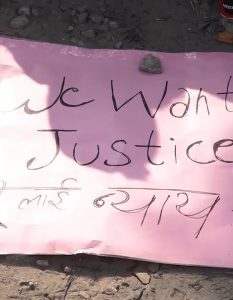 We Want
Justice
लाई न्याय